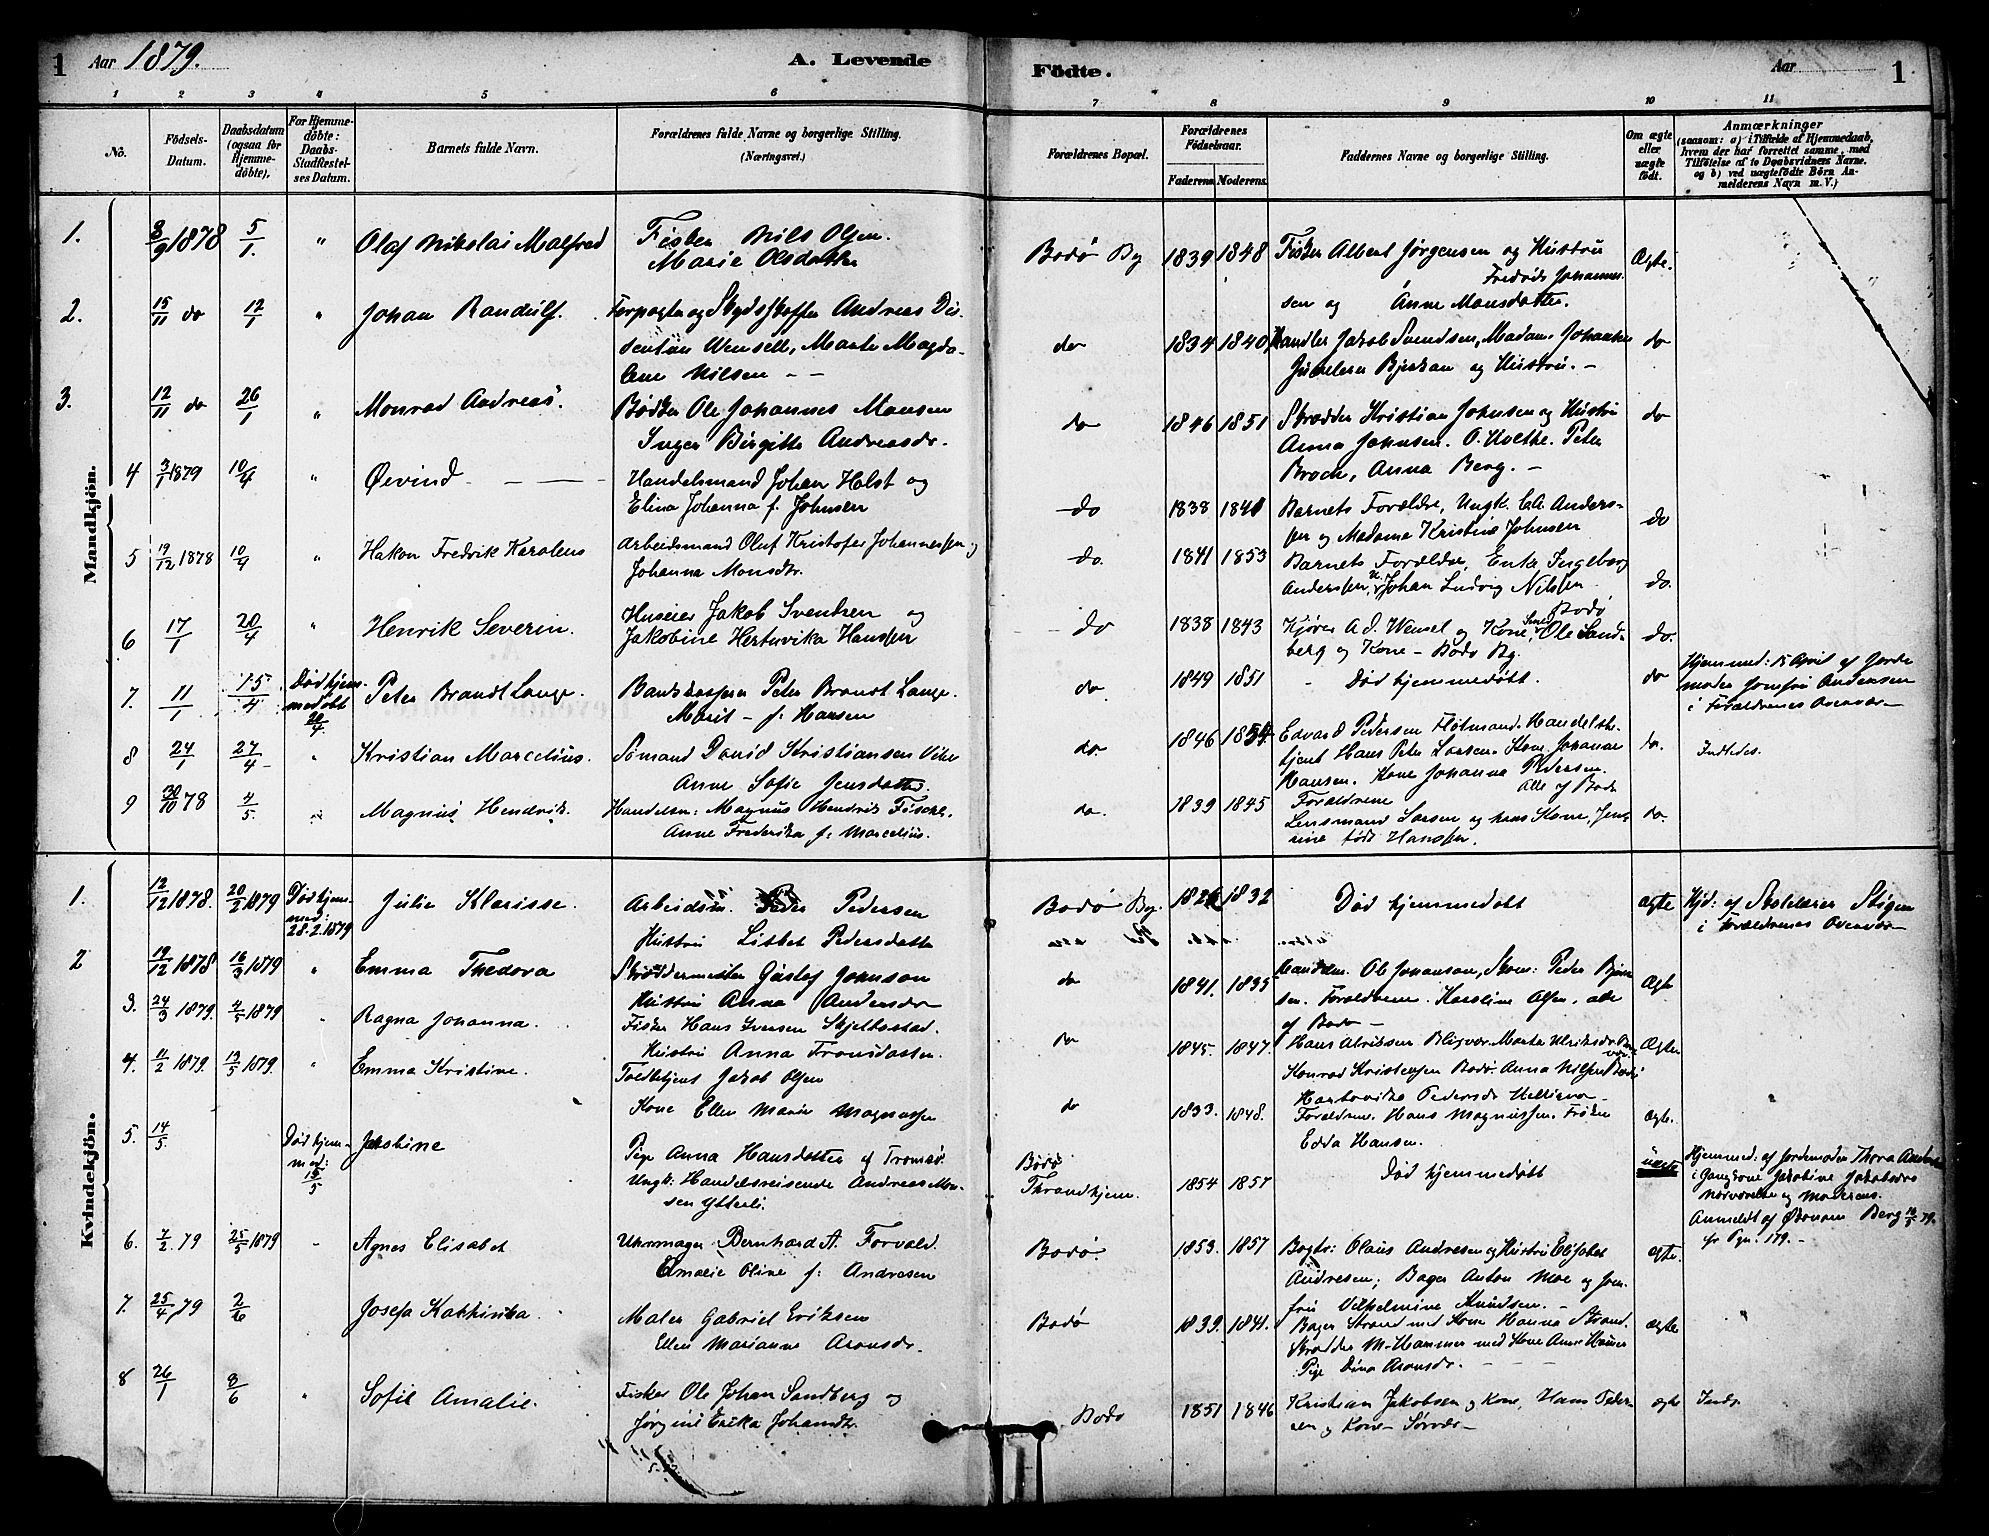 1 Aar 1879. A. Levende Födte. Aar 1
1 2 3 4 5 6 7 8 9 10 11
No. Födsels-Datum. Daabsdatum (ogsaa for Hjemmedöbte). For Hjemmedöbte: Daabs-Stadfæstelses Datum. Barnets fulde Navn. Forældrenes fulde Navne og borgerlige Stilling. (Næringsvei.) Forældrenes Bopæl. Forældrenes Födselsaar. Faderens. Moderens. Faddernes Navne og borgerlige Stilling. Om ægte eller uægte födt. Anmærkninger (saasom: a) i Tilfælde af Hjemmedaab, hvem der har forrettet samme, med Tilföielse af to Daabsvidners Navne. og b) ved uægtefödte Börn Anmelderens Navn m. V.)
Mandkjön.
1. 3/9 1878 5/1. " Olaf Nikolai Malfred Fisker Nils Olsen. Bodø By 1839 1848 Fisker Albert Jørgensen og Hustru Ægte.
Marie Olsdatter Johannes-
sen og Anne Monsdatter.
2. 15/11 do 12/1 " Johan Randulf. Forpagter og Skydsskaffer Andreas Di-
sentius Wensell, Marte Magda- do 1834 1840 Handler Jakob Svendsen, Madam Johanne do
lene Nilsen - - og Hustru. -
3. 12/11 do 26/1 " Monrad Andreas. Bødker Ole Johannes Monsen do 1846 1851 Skrædder Kristian Johnsen og Hustru do
Inger Birgitte Andreasdr. Anna Johnsen. O. Holthe. Peter
Broch, Anna Berg. -
4 3/1 1879 10/4 " Øivind - — — Handelsmand Johan Holst og do 1838 1841 Barnets Forældre, Ungk. Anders- do
Elina Johanna f. Johnsen sen og Madame Kristine Johnsen
5 19/12 1878 10/4 " Hakon Fredrik Karolius Arbeidsmand Oluf Kristofer Johannessen og do. 1841 1853 Barnets Forældre, Enke Ingeborg do.
Johanna Monsdtr. Anderssen, Johan Ludvig Nilssen
6 17/1 20/4 " Henrik Severin. Huseier Jakob Svendsen og do 1838 1843 Kjører A d. Wensel og Kone, Ole Sand- do.
Jakobine Hertuvika Hanssen berg og Kone - Bodø By.
7. 11/1 15/4 Død hjem- Peter Brandt Lange. Peter Brandt Lange. do 1849 1851 - Død hjemmedøbt. do Hjemmed: 15 April af Jorde-
medøbt 20/4 Marit - f: Hansen moder Jomfru Andersen
i Forældrenes Overvær -
8 24/1 27/4 " Kristian Marcelius. Sømand David Kristiansen do 1846 Edvard Pedersen Handelsbe- do. Indledes.
Anne Sofie Jensdatter. tjent Hans Peter Larsen. Kone Johanne
Hansen. Kone Johanna Pedersen. Alle af Bodø
9 30/10 78 4/5. " Magnus Hendrik. Handelsm: Magnus Hendrik do. 1839 1845 Forældrene do.
Anne Frederika f: Marcelius. Lensmand Larsen og hans Kone, Jen-
sine født Hanssen.
Kvindekjön.
1. 12/12 1878. 20/2 1879 Død hjem- Julie Klarisse. Arbeidsm. Peder Pedersen Bodø By. 1832 Død hjemmedøbt ægte Hjd: af Skolelærer Stigen
med: 28-2-1879 Hustru Lisbet Pedersdatter i Forældrenes Overvær-
2 19/12 1878 16/3 1879 " Emma Thedora Skræddermester Gustaf Johnson do 1841. 1835 Ole Johansen, Peder Ægte
Hustru Anna Andersdr Forældrene. Karoline Olsen. alle af Bodø -
3. 24/3 1879. 4/5 1879 " Ragna Johanna. Fisker Hans Iversen do 1845. 1847. Hans Ulriksen Marta Ulriksdr Ægte
Hustru Anna Tronsdatter. Konrad Kristensen Bodø. Anna Nilsen Bodø
4. 11/2 1879. 13/5 1879. " Emma Kristine. Toldbetjent Jakob Olsen do 1833. 1848. Forældrene. Hans Magnussen. Frøken Ægte.
Kone Ellen Marie Magnussen Edda Hansen.
5. 14/5. Død hjem- Jakobine Pige Anna Hansdatter af Tromsø. Bodø Død hjemmedøbt uægte Hjemmed: af Jordemoder Thora
med: 15/5 Ungk: Handelsreisende Andreas Mon- Throndhjem. 1854 1857 Jakobine
sen Ytterli. Nærværelse og Moderens.
Anmeldt af Berg
6. 7/2. 79 25/5 1879 " Agnes Elisabet Uhrmager Bernhard A. Forvald. Bodø. 1853. 1857 Bogtr: Olaus Andresen og Hustru Elisabet ægte. Pgn: 179. -
Emalie Oline f: Andresen Andresen; Bager Anton Moe og Jom-
fru Vilhelmine Knudsen. -
7. 25/4 79 2/6 Josefa Kathinka. Maler Gabriel Eriksen Bodø 1839. 1841. Bager Strand med Kone Hanna Strand. Ægte
Ellen Marianne Aronsdr. Skrædder M. Hammer med Kone Anne Hammer
Pige Dina Aronsdr. -
8 26/1 8/6 " Sofie Amalie. Fisker Ole Johan Sandberg og Bodø 1851 1846 Kristian Jakobsen og Kone, Hans Peder- ægte
Jørgine Erika Johansdtr. sen og Kone -